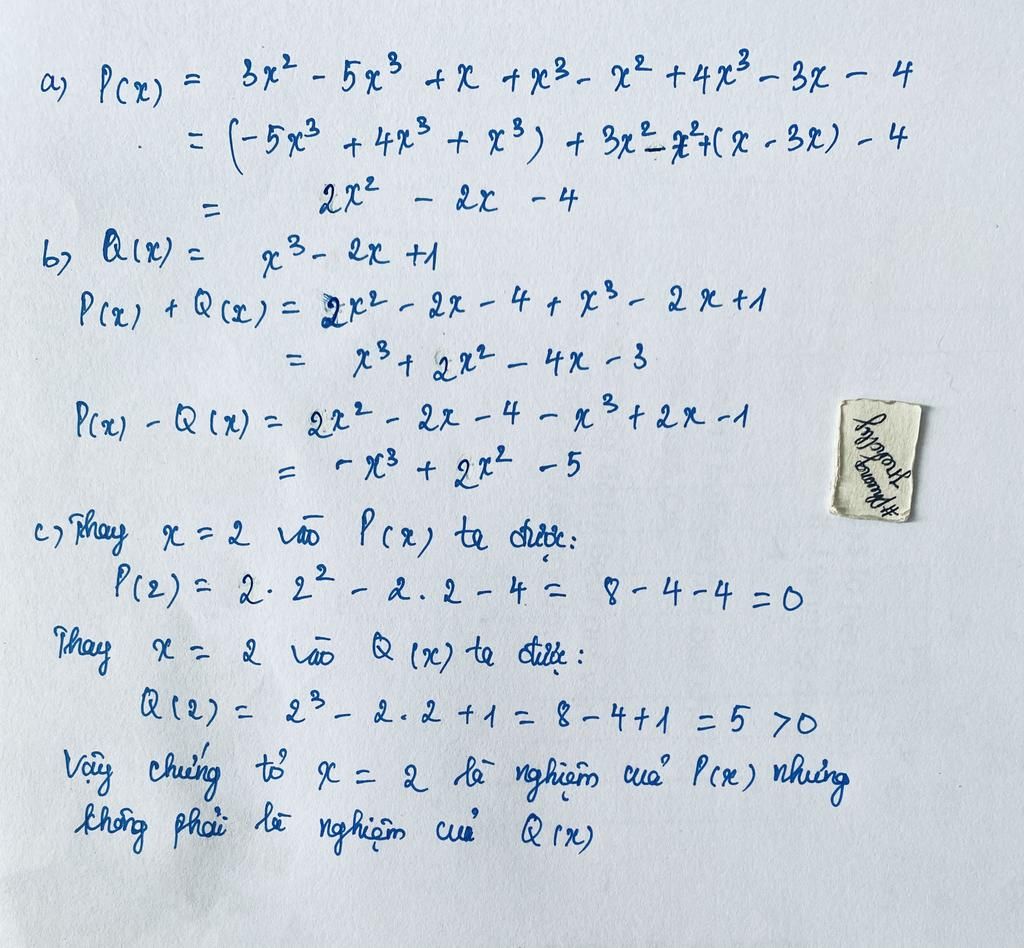 a) P(x) = 3x² - 5x³ + x + x³ - x² + 4x³ - 3x - 4
= (-5x³ + 4x³ + x³) + 3x² - x² + (x - 3x) - 4
= 2x² - 2x - 4
b) Q(x) = x³ - 2x + 1
P(x) + Q(x) = 2x² - 2x - 4 + x³ - 2x + 1
= x³ + 2x² - 4x - 3
P(x) - Q(x) = 2x² - 2x - 4 - x³ + 2x - 1
= - x³ + 2x² - 5
c) Thay x = 2 vào P(x) ta được:
P(2) = 2.2² - 2.2 - 4 = 8 - 4 - 4 = 0
Thay x = 2 vào Q(x) ta được:
Q(2) = 2³ - 2.2 + 1 = 8 - 4 + 1 = 5 > 0
Vậy chứng tỏ x = 2 là nghiệm của P(x) nhưng
không phải là nghiệm của Q(x)
#Phuong